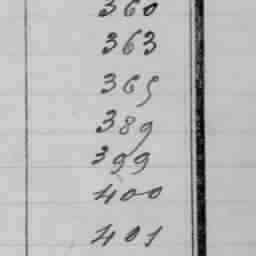 360
363
365
389
399
400
401